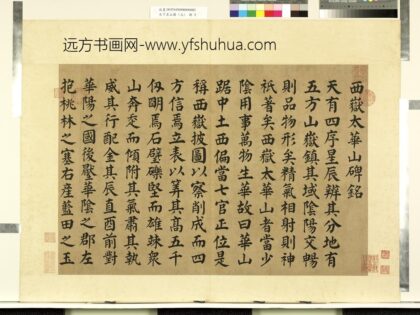 远方书画网-www.yfshuhua.com
西嶽太華山碑銘
天有四序星辰辨其分地有
五方山嶽鎮其域陰陽交暢
則品物形矣精氣相射則神
祇著矣西嶽太華山者當少
陰用事萬物生華故曰華山
踞中土西偏當七宮正位是
稱西嶽披圖以察削成而四
方信焉立表以筭其高五千
仭明焉石壁硨竪而雄竦眾
山奔走而傾附其氣肅其勢
威其行配金其辰直酉前對
華陽之國後壓華陰之郡左
抱桃林之塞右產藍田之玉